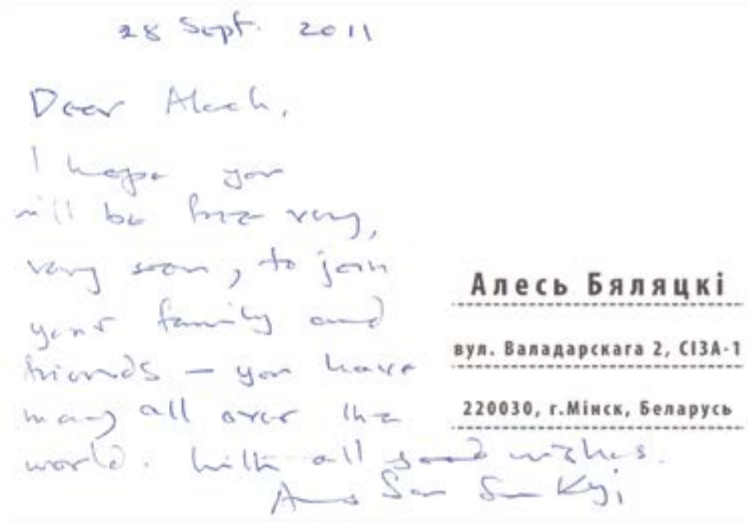 28 Sept. 2011
Dear Alech,
I hope you
will be free very,
very soon, to join
your family and
friends – you have
many all over the
world. With all good wishes.
Aung San Suu Kyi
Алесь Бяляцкі
вул. Валадарскага 2, СІЗА-1
220030, г.Мінск, Беларусь